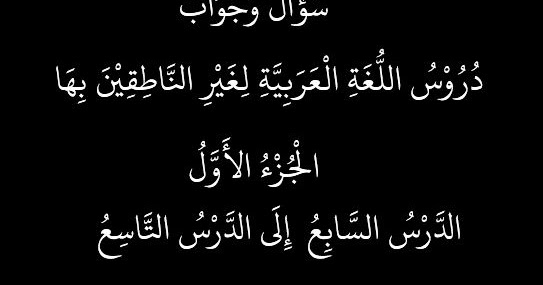 سؤال وجواب
دُرُوْسُ اللُّغَةِ الْعَرَبِيَّةِ لِغَيْرِ النَّاطِقِيْنَ بِهَا
الْجُزْءُ الأَوَّلُ
الدَّرْسُ السَّابِعُ إِلَى الدَّرْسُ التَّاسِعُ